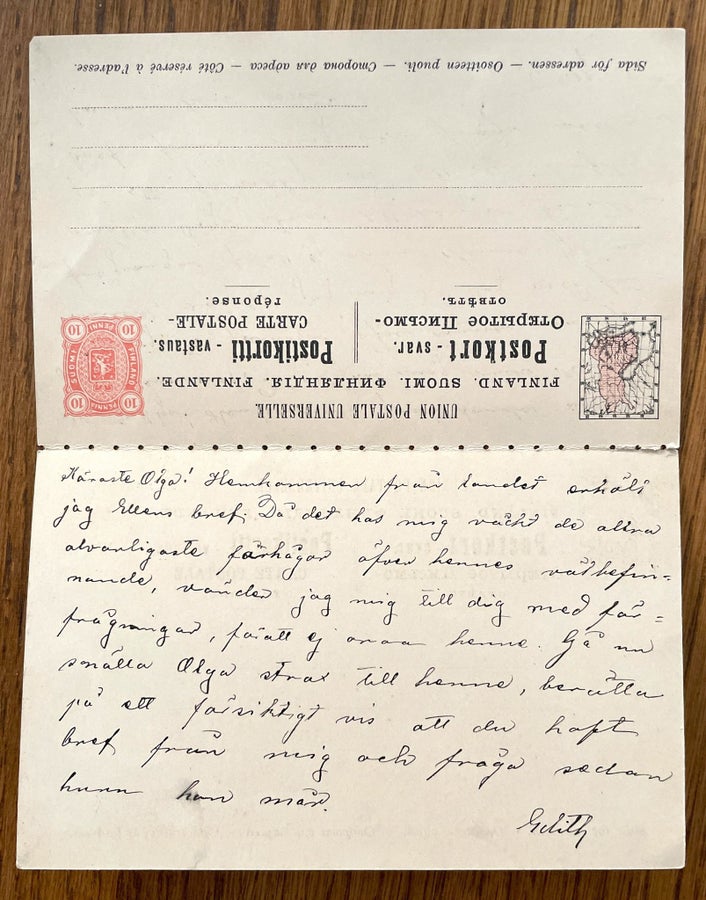 UNION POSTALE UNIVERSELLE
FINLAND. SUOMI. ФИНЛЯНДІЯ. FINLANDE.
Postkort - svar. Postikortti - vastaus.
Открытое Письмо- CARTE POSTALE-
отвѣтъ. réponse.
10 10
SUOMI PENNI FINLAND
PENNIÄ
10 10
Sida för adressen. — Osoitteen puoli. — Сторона для адреса — Côté réservé à l'adresse.
Käraste Olga! Hemkommen från landet erhöll
jag Ellens bref. Då det hos mig väckt de allra
alvarligaste farhågor öfver hennes välbefin-
nande, vänder jag mig till dig med för=
frågningar, föratt ej oroa henne. Gå nu
snälla Olga strax till henne, berätta
på ett försiktigt vis att du haft
bref från mig och fråga sedan
huru hon mår.
Edith